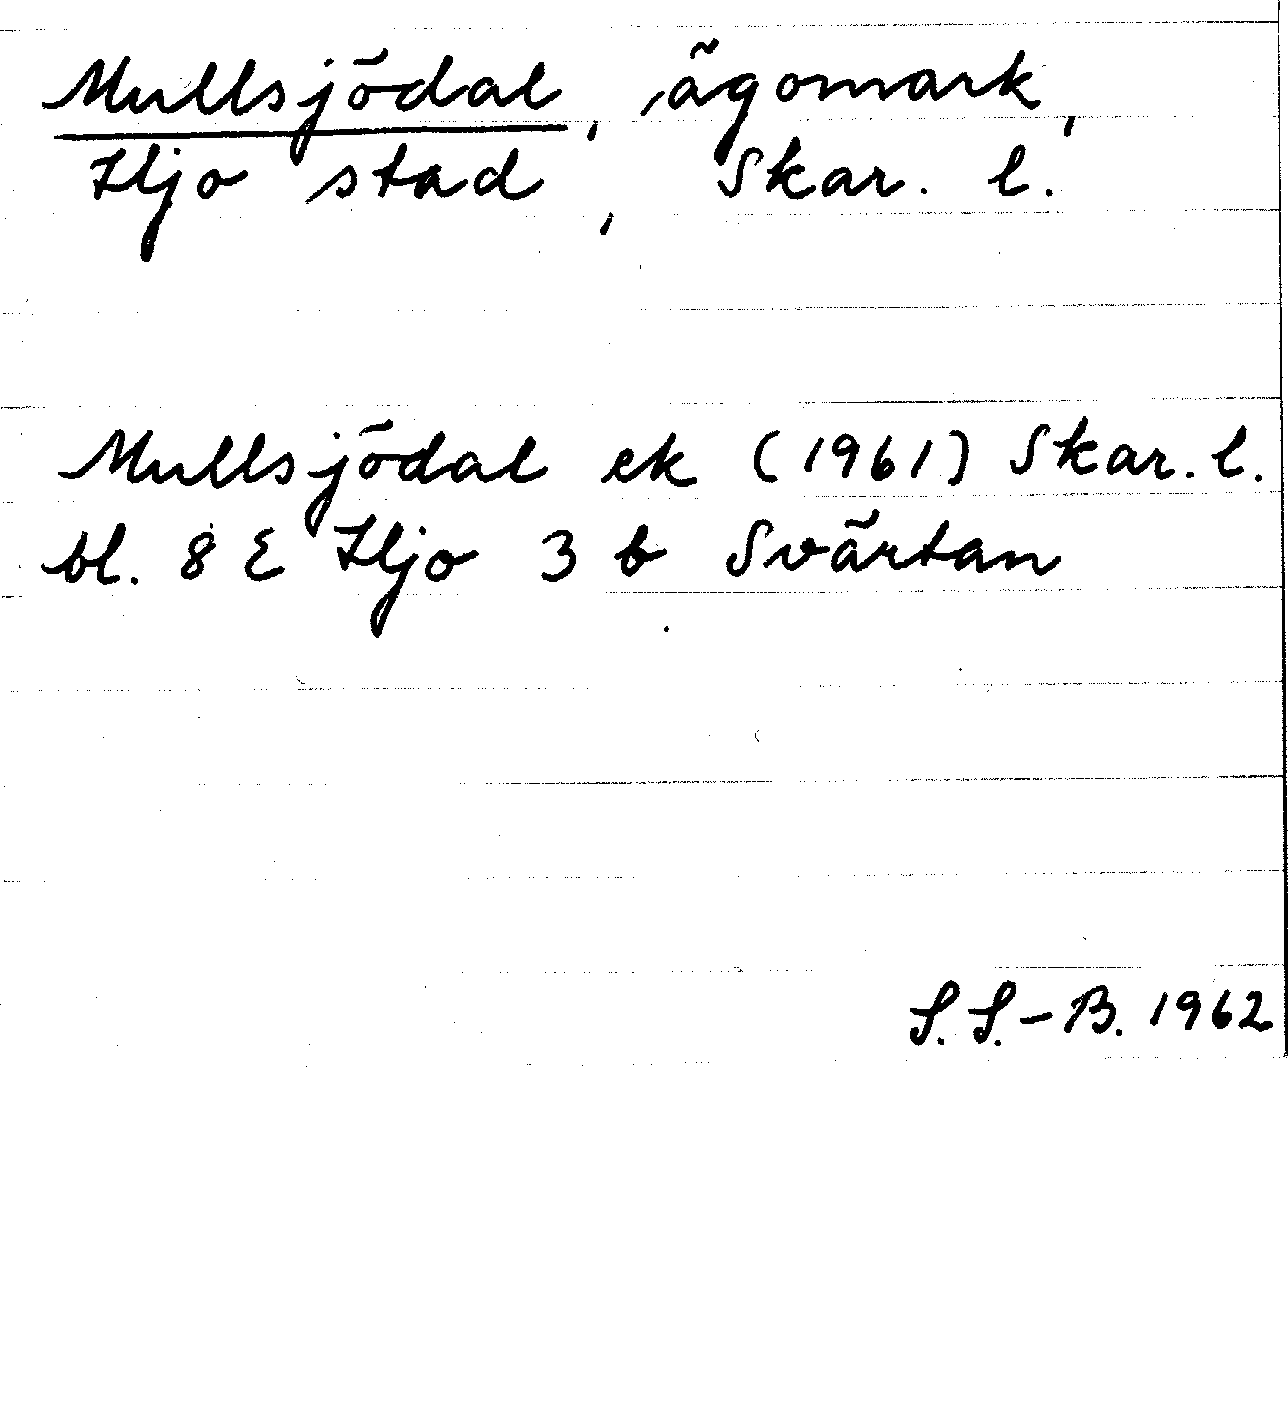 Mullsjödal, ägomark,
Hjo stad, Skar. l.
Mullsjödal ek (1961) Skar. l.
bl. 8 E Hjo 3 b Svärtan
S. S.-B. 1962